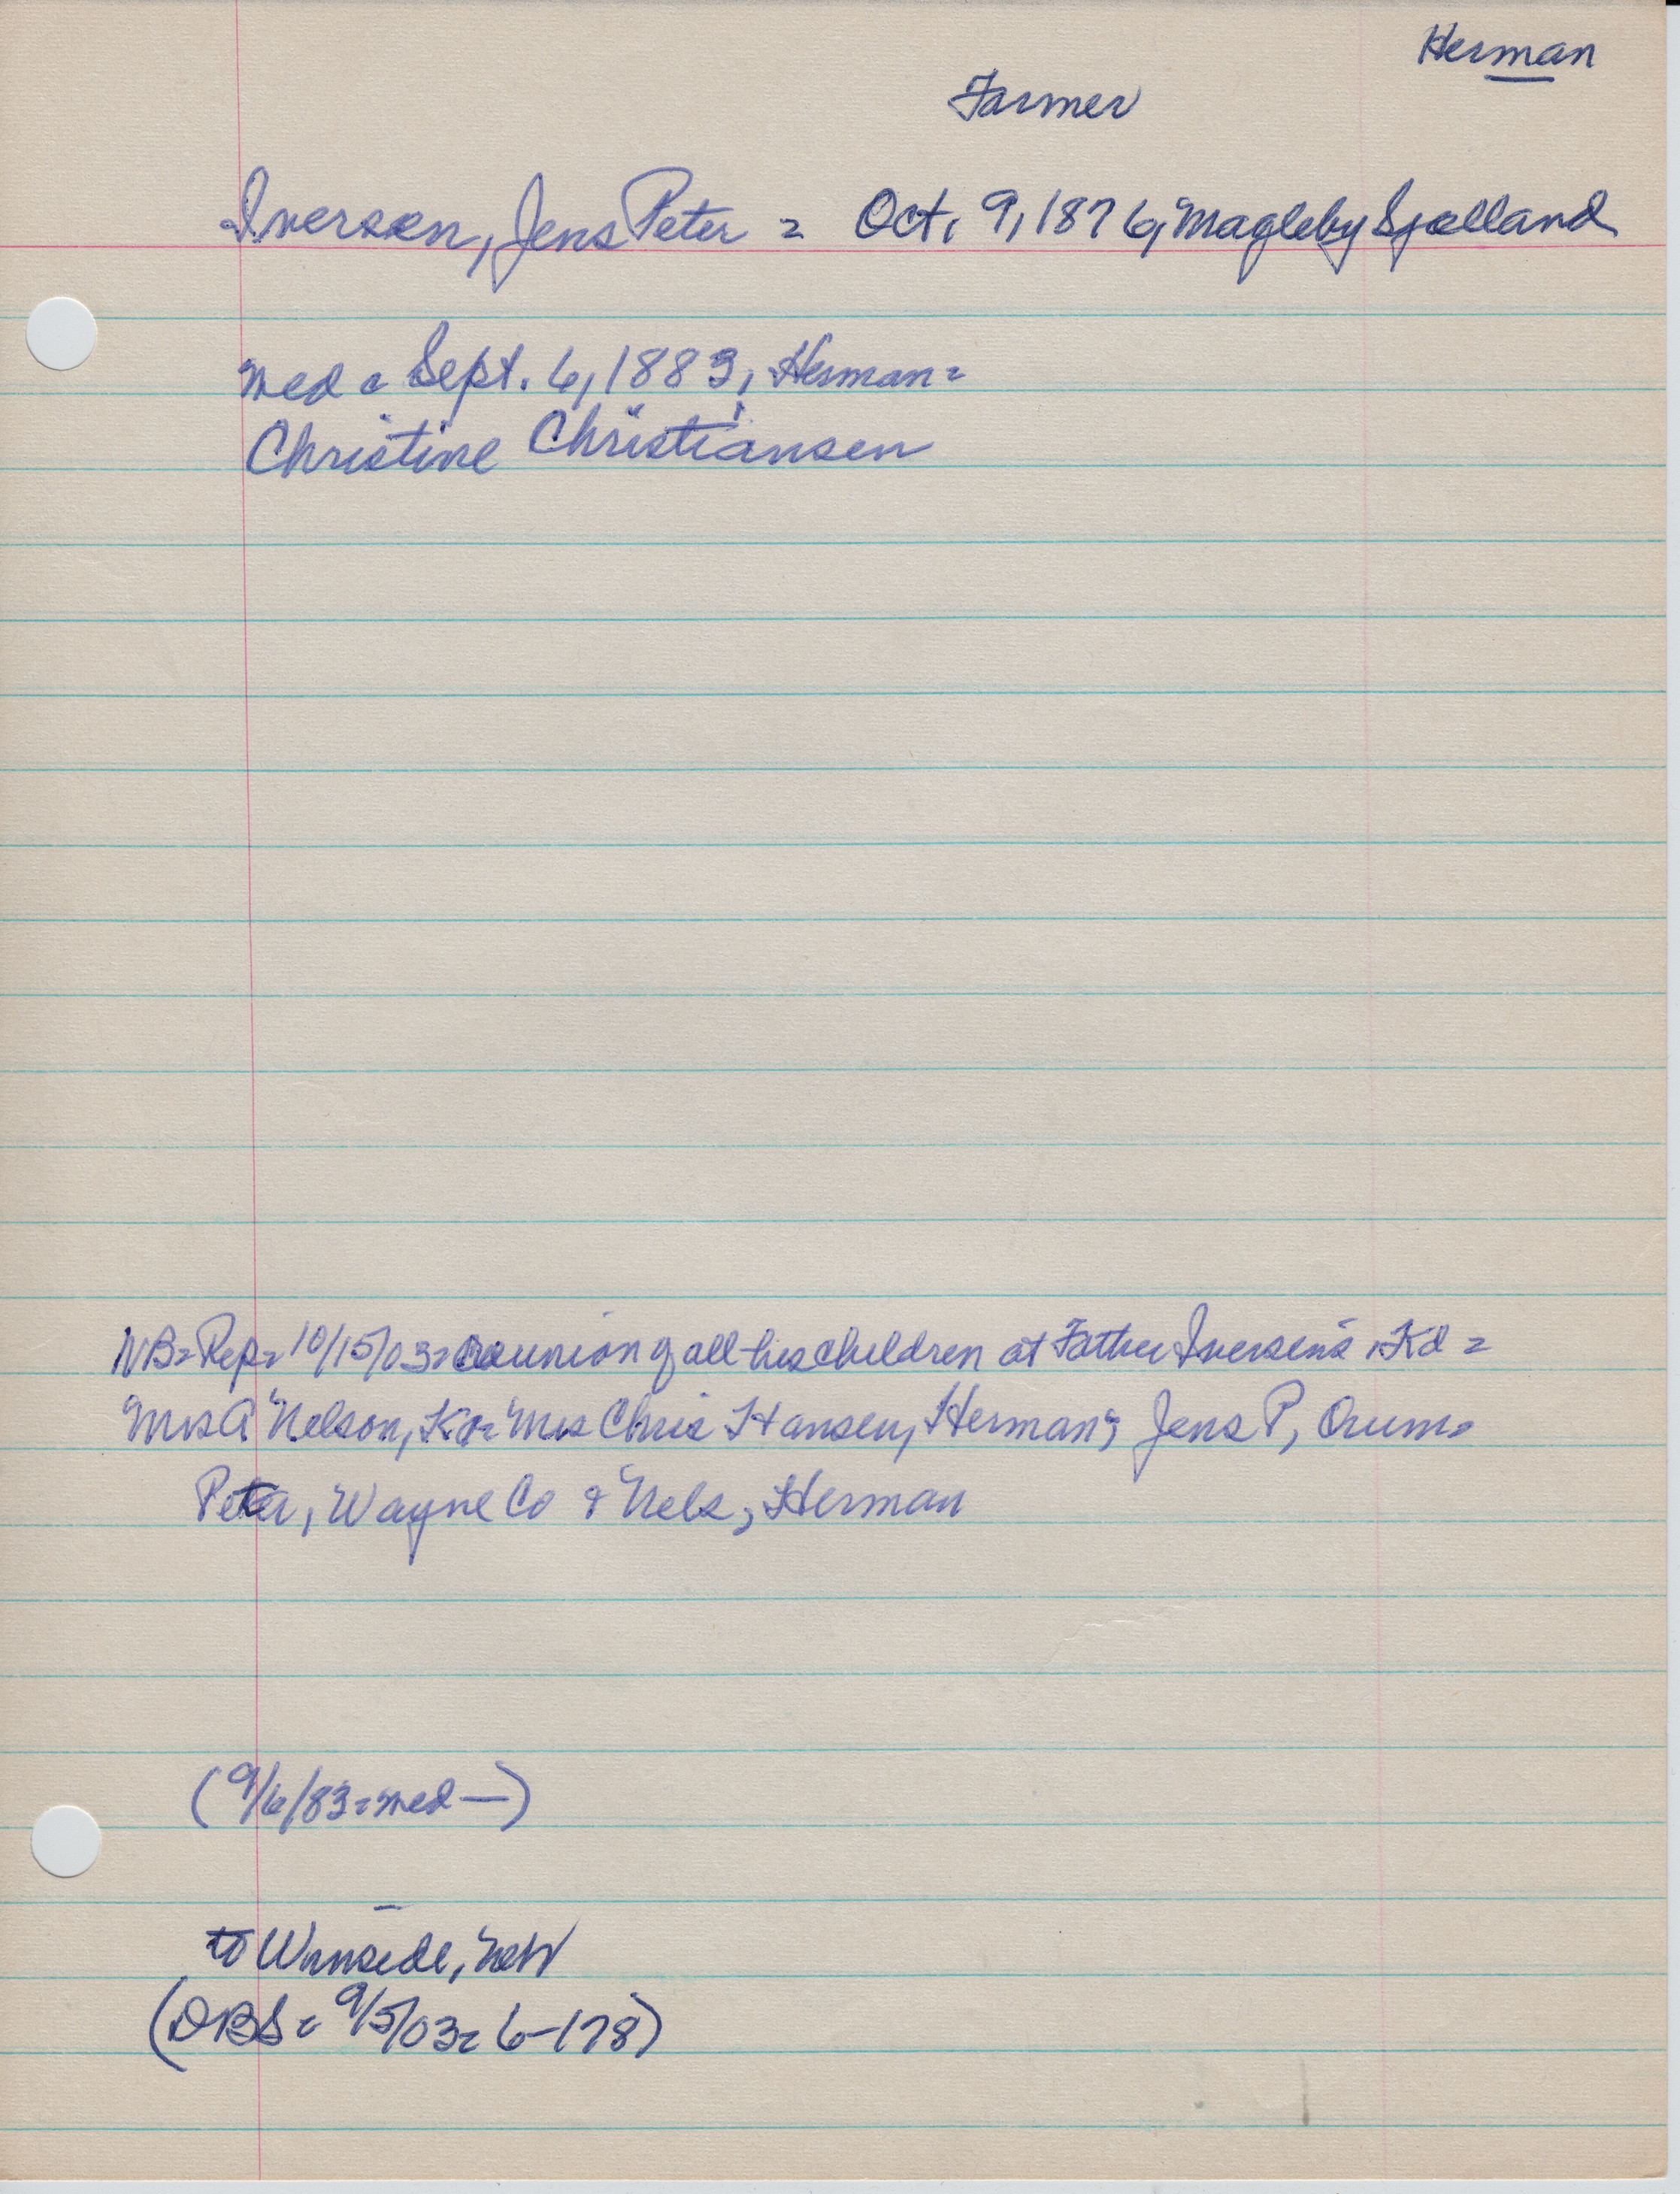 Herman
Farmer
Iversen, Jens Peter = Oct. 9, 1876, Magleby Sjælland
med = Sept. 6, 1883, Herman =
Christine Christiansen
NB = Rep = 10/15/03 = reunion of all his children at Father Iversen's, Kd =
Mrs A Nelson, Kd = Mrs Chris Hansen, Herman; Jens P, Orum =
Peter, Wayne Co & Nels, Herman
(9/6/83 = med —)
to Winside, Neb
(DBS = 9/5/03 = 6-178)